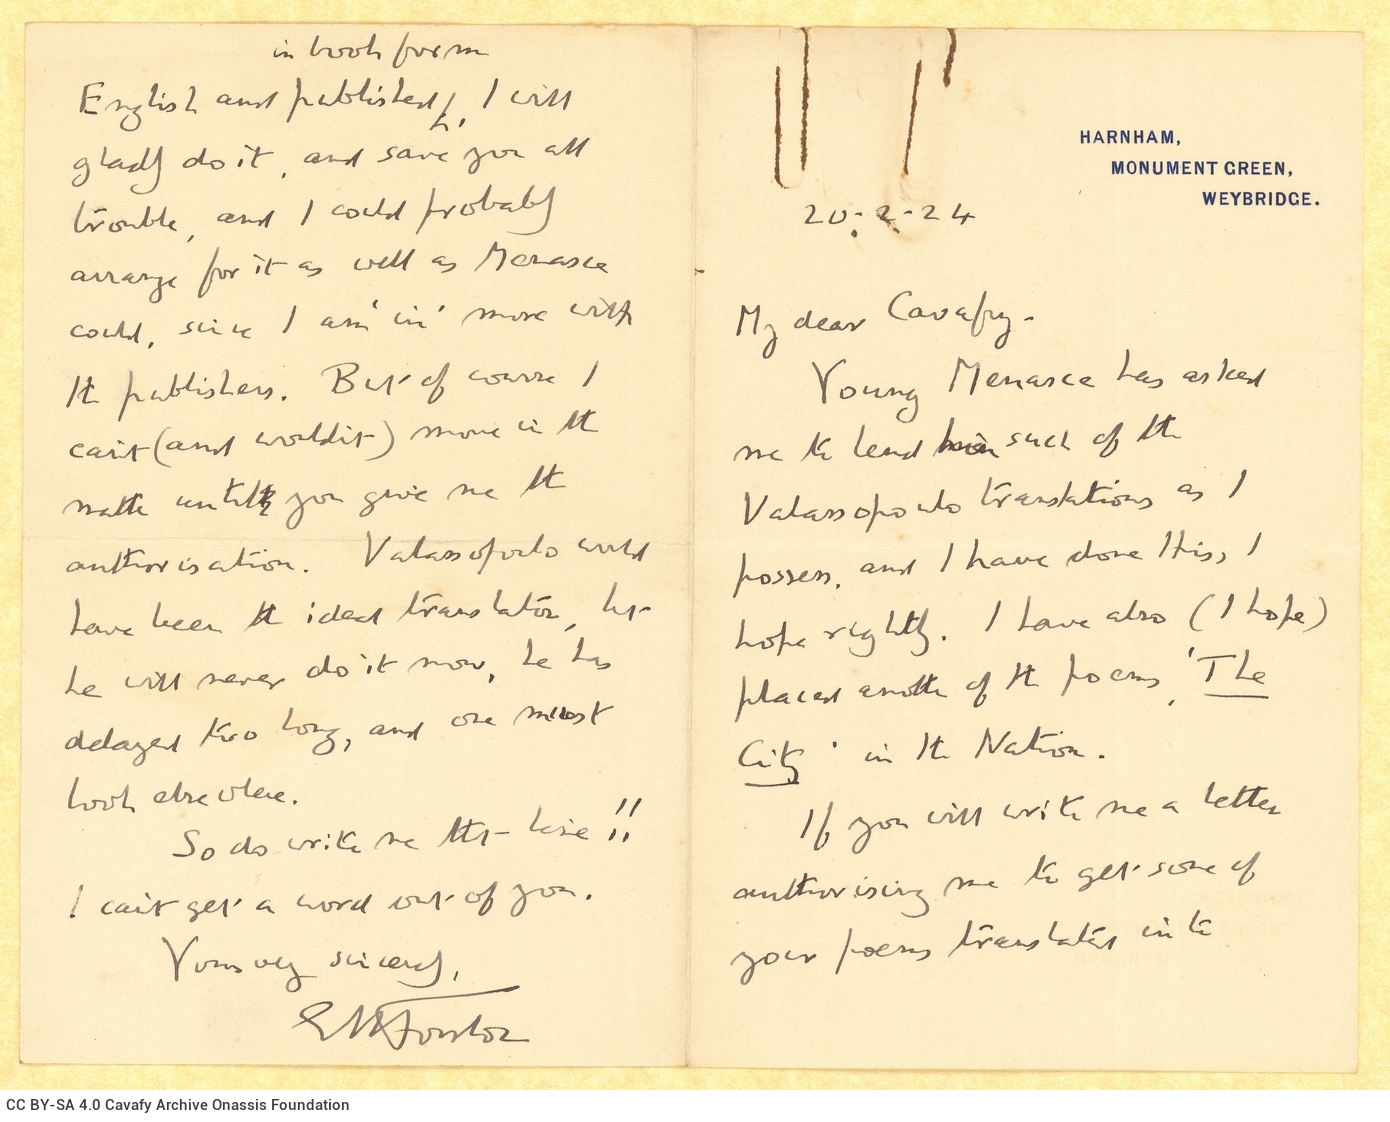 HARNHAM,
MONUMENT GREEN,
WEYBRIDGE.
20-2-24
My dear Cavafy.
Young Menasce has asked
me to lend him such of the
Valassopoulo translations as I
possess, and I have done this, I
hope rightly. I have also (I hope)
placed another of the poems, 'The
City' in the Nation.
If you will write me a letter
authorising me to get some of
your poems translated into
English and published in book form, I will
gladly do it, and save you all
trouble, and I could probably
arrange for it as well as Menasce
could, since I am 'in' more with
the publishers. But of course I
can't (and wouldn't) move in the
matter until you give me the
authorisation. Valassopoulo would
have been the ideal translator, but
he will never do it now, he has
delayed too long, and one must
look elsewhere.
So do write me that line!!
I can't get a word out of you.
Yours very sincerely,
EMForster
CC BY-SA 4.0 Cavafy Archive Onassis Foundation